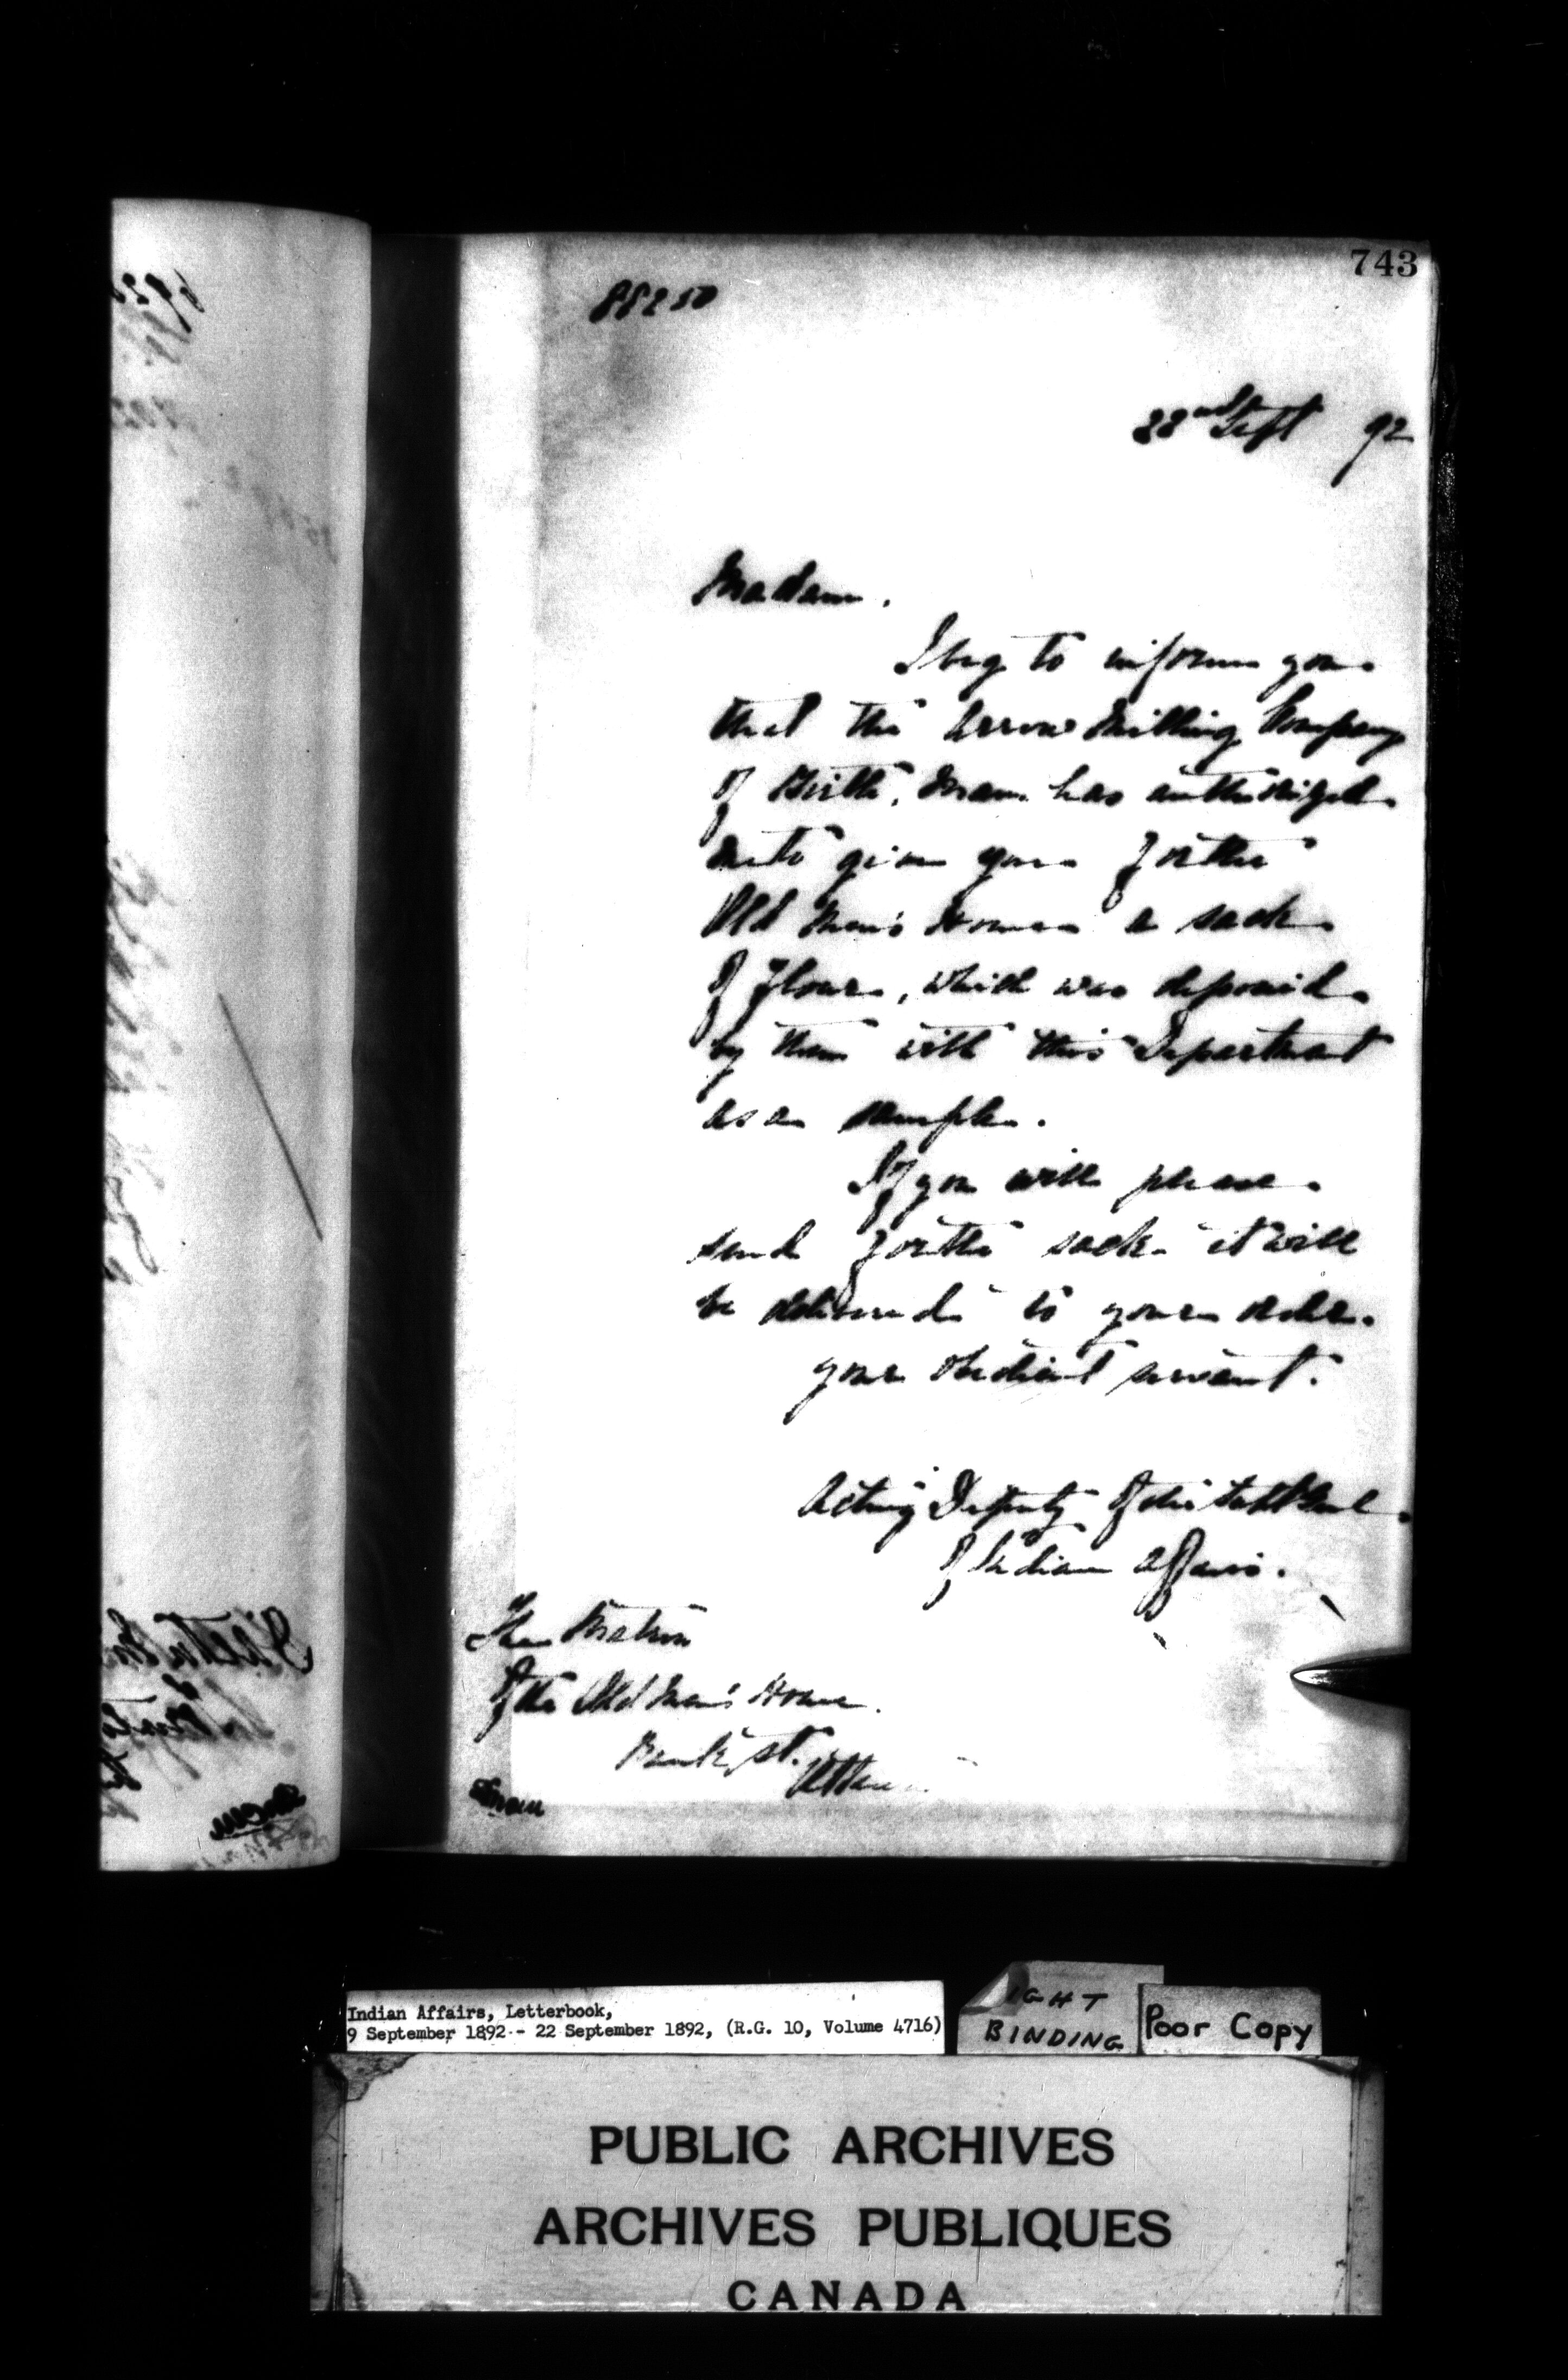 743
88250
22nd Sept 92
Madam.
I beg to inform you
that the Arrow Milling Company
of Birtle, Man. has authorized
me to give you for the
Old Men's Home a sack
of flour, which was deposited
by them with this Department
as a sample.
If you will please
send for the sack it will
be delivered to your order.
Your obedient servant.
Acting Deputy of the Supt Genl
of Indian Affairs.
The Matron
Of the Old Men's Home.
Bank St. Ottawa
Indian Affairs, Letterbook,
9 September 1892 - 22 September 1892, (R.G. 10, Volume 4716)
IGHT
BINDING
Poor Copy
PUBLIC ARCHIVES
ARCHIVES PUBLIQUES
CANADA